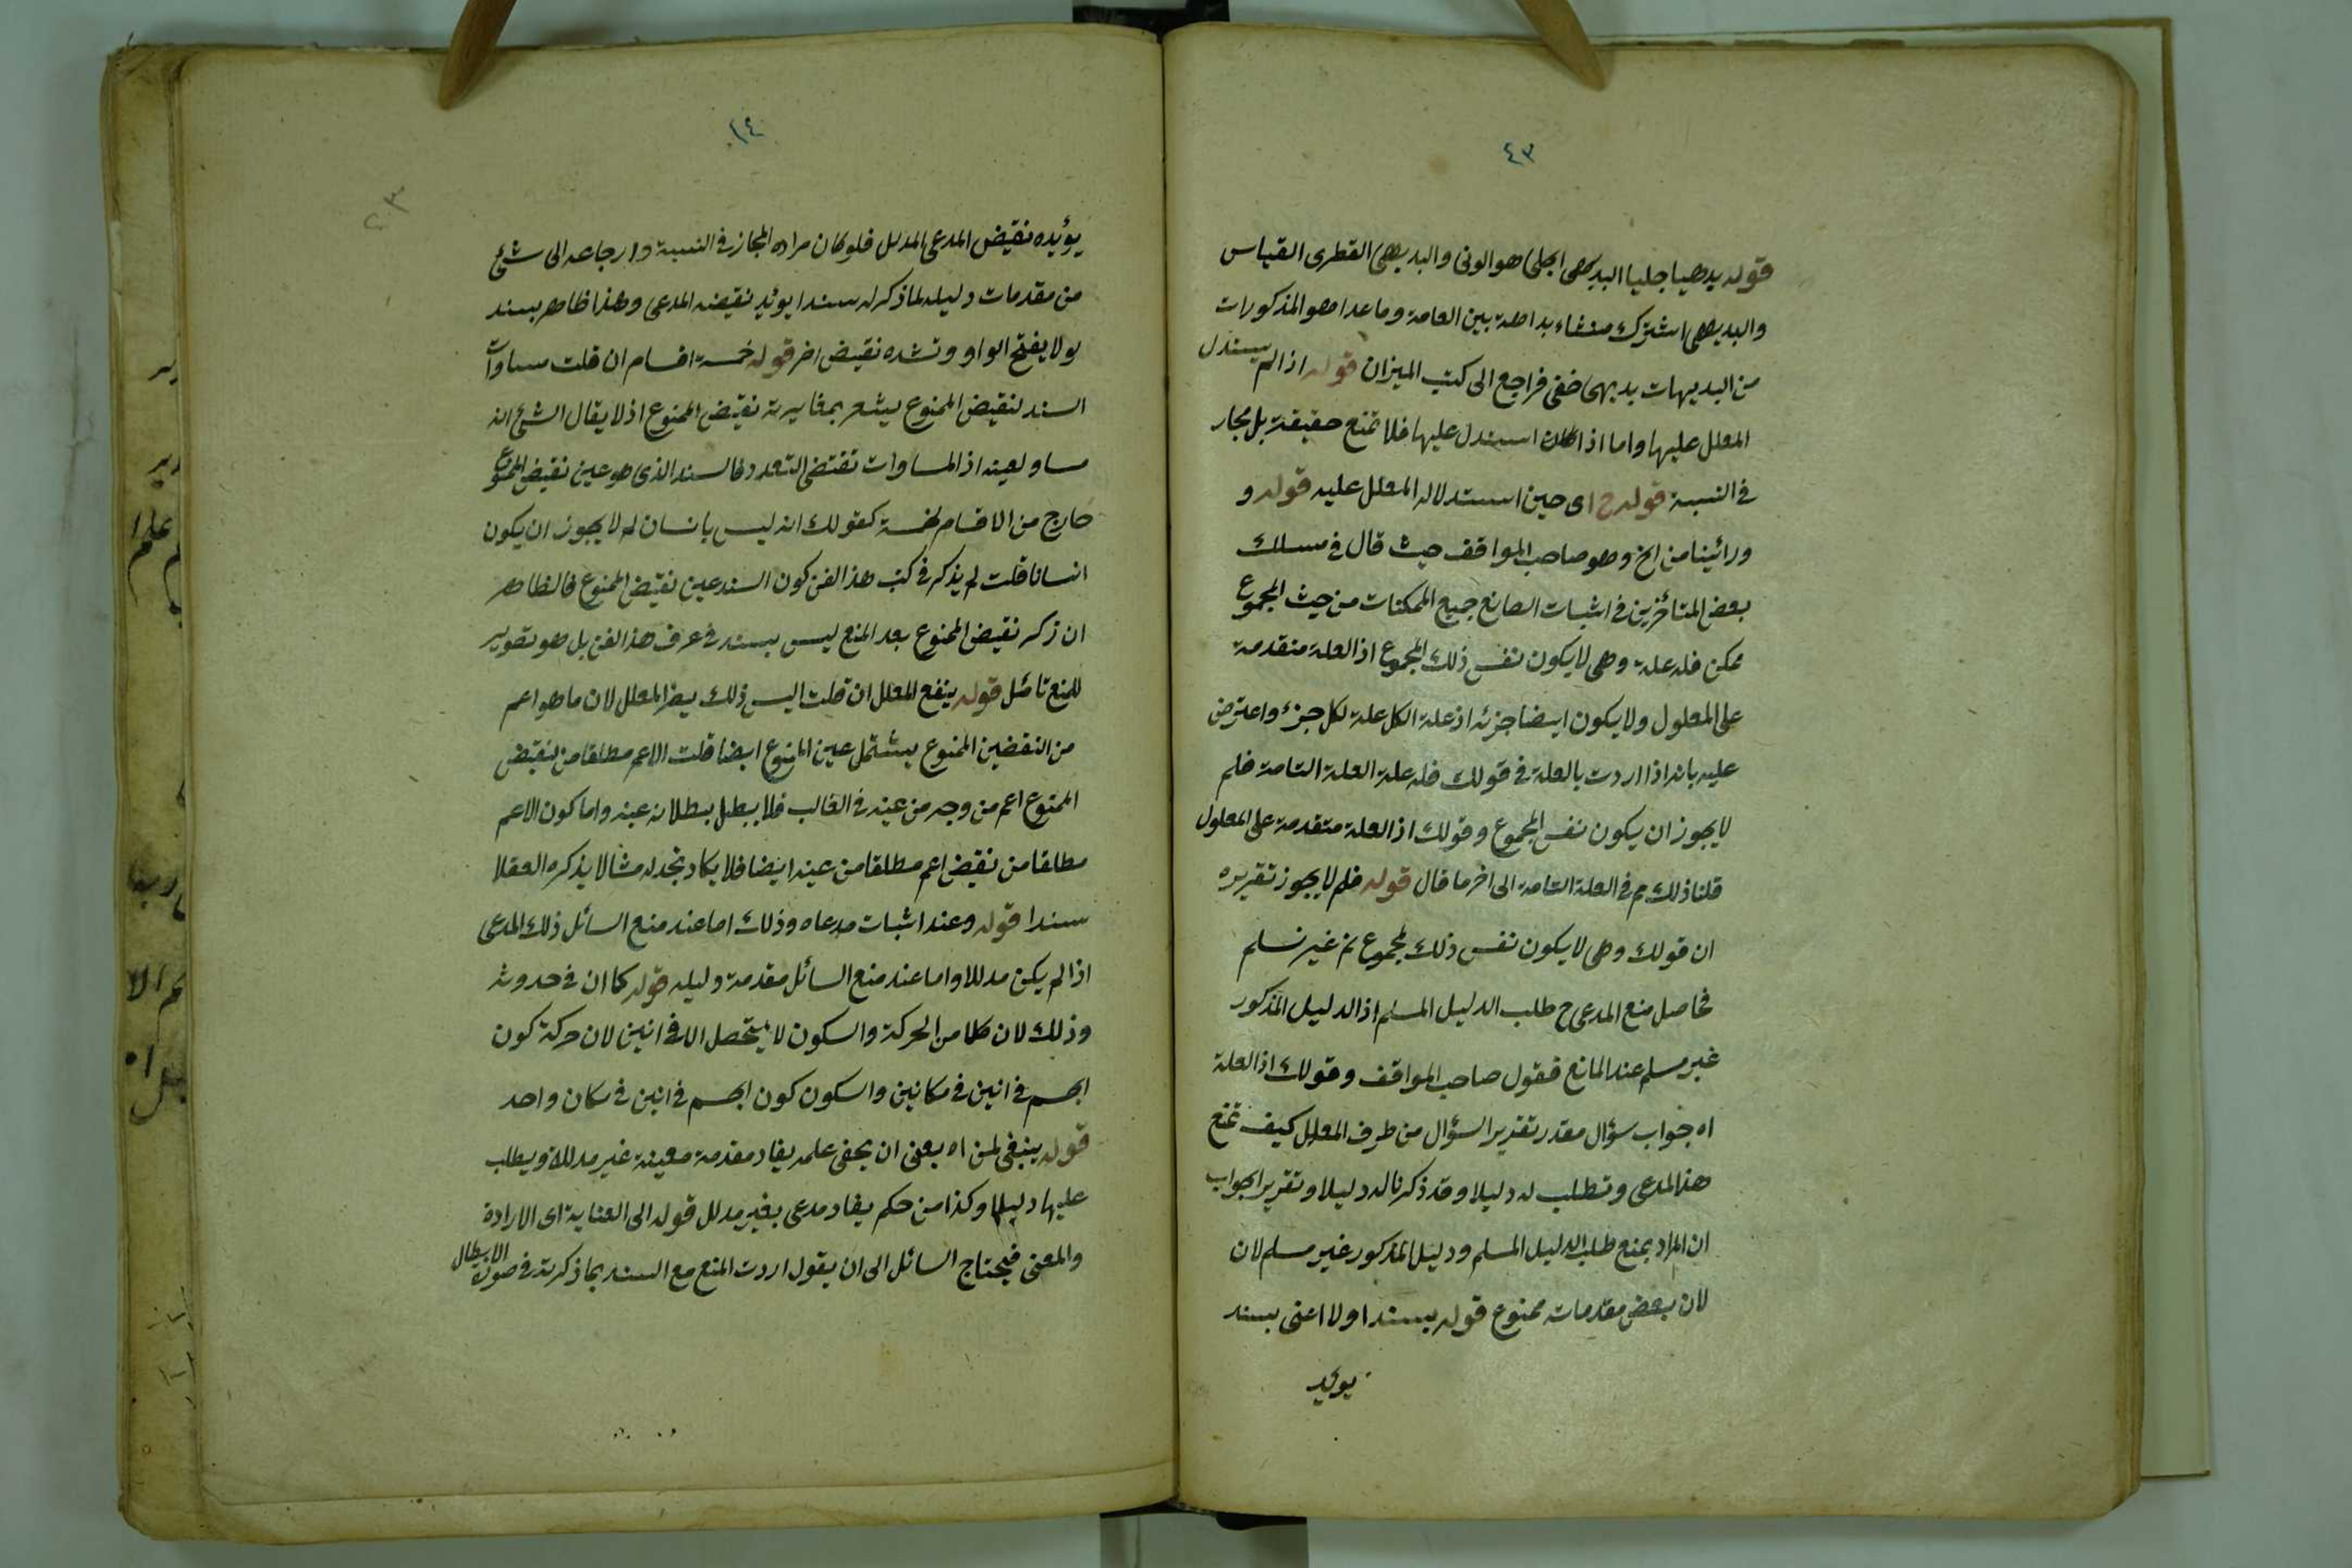 ٤٣
قوله بدهيا جليا البديهى الجلى هو الونى والبديهى القطرى القياس
والبديهى اشترك منشاء بداهة بين العامة وما عدا هو المذكورات
من البديهات بديهى خفى فراجع الى كتب الميزان قوله اذا لم يستدل
المعلل عليها واما اذا كان استدل عليها فلا تمنع حقيقة بل مجاز
فى النسبة قوله ح اى حين استدلاله المعلل عليه قوله و
ورائينا من الخ وهو صاحب المواقف حيث قال فى مسلك
بعض المتأخرين فى اثبات الصانع جميع الممكنات من حيث المجموع
ممكن فله علة وهى لا يكون نفس ذلك المجموع اذ العلة متقدمة
على المعلول ولا يكون ايضا جزئه اذ علة الكل علة لكل جزء واعترض
عليه بانه اذا اردت بالعلة فى قولك فله علة العلة التامة فلم
لا يجوز ان يكون نفس المجموع وقولك اذ العلة متقدمة على المعلول
قلنا ذلك م فى العلة التامة الى اخر ما قال قوله فلم لا يجوز تقريره
ان قولك وهى لا يكون نفس ذلك المجموع م غير نسلم
فحاصل منع المدعى ح طلب الدليل المسلم اذ الدليل المذكور
غير مسلم عند المانع فقول صاحب المواقف وقولك اذ العلة
اه جواب سؤال مقدر تقدير السؤال من طرف المعلل كيف تمنع
هذا المدعى وتطلب له دليلا وقد ذكرنا له دليلا وتقرير الجواب
ان المراد بمنع طلب الدليل المسلم ودليل المذكور غير مسلم لان
لان بعض مقدماته ممنوع قوله بسند اولا اعنى بسند
يؤيد
٤٤
٢٣
يؤيده نقيض المدعى المدلل فلو كان مراده المجاز فى النسبة وارجاعه الى شئ
من مقدمات دليله لما ذكر له سندا يؤيد نقيضه المدعى وهذا ظاهر بسند
لولا يفتح الواو وتشده نقيض اخر قوله خمسة اقسام ان قلت مساوات
السند لنقيض الممنوع يشعر بمغايرته نقيض الممنوع اذ لا يقال الشئ انه
مساو لعينه اذ المساوات تقتضى التعدد فالسند الذى هو عين نقيض الممنوع
خارج من الاقسام الخمسة كقولك انه ليس بانسان لم لا يجوز ان يكون
انسانا قلت لم يذكر فى كتب هذا الفن كون السند عين نقيض الممنوع فالظاهر
ان ذكر نقيض الممنوع بعد المنع ليس بسند فى عرف هذا الفن بل هو تصوير
للمنع تأمل قوله ينفع المعلل ان قلت اليس ذلك يضر المعلل لان ما هو اعم
من النقضين الممنوع يشتمل عين الممنوع ايضا قلت الاعم مطلقا من نقيض
الممنوع اعم من وجه من عينه فى الغالب فلا يبطل بطلانه عينه واما كون الاعم
مطلقا من نقيض اعم مطلقا من عينه ايضا فلا يكاد نجد له مثالا يذكره العقلا
سندا قوله وعند اثبات مدعاه وذلك اما عند منع السائل ذلك المدعى
اذا لم يكن مدللا واما عند منع السائل مقدمة دليله قوله كما ان فى حدوثه
وذلك لان كلا من الحركة والسكون لا يتحصل الا فى انين لان حركة كون
الجسم فى انين فى مكانين والسكون كون الجسم فى انين فى مكان واحد
قوله ينبغى لمن اه يعنى ان يخفى علمه يقاد مقدمة معينة غير مدللة ويطلب
عليها دليلا وكذا من حكم يقاد مدعى بغير مدلل قوله الى العناية اى الارادة
والمعنى فيحتاج السائل الى ان يقول اردت المنع مع السند بما ذكرته فى صورة الابطال